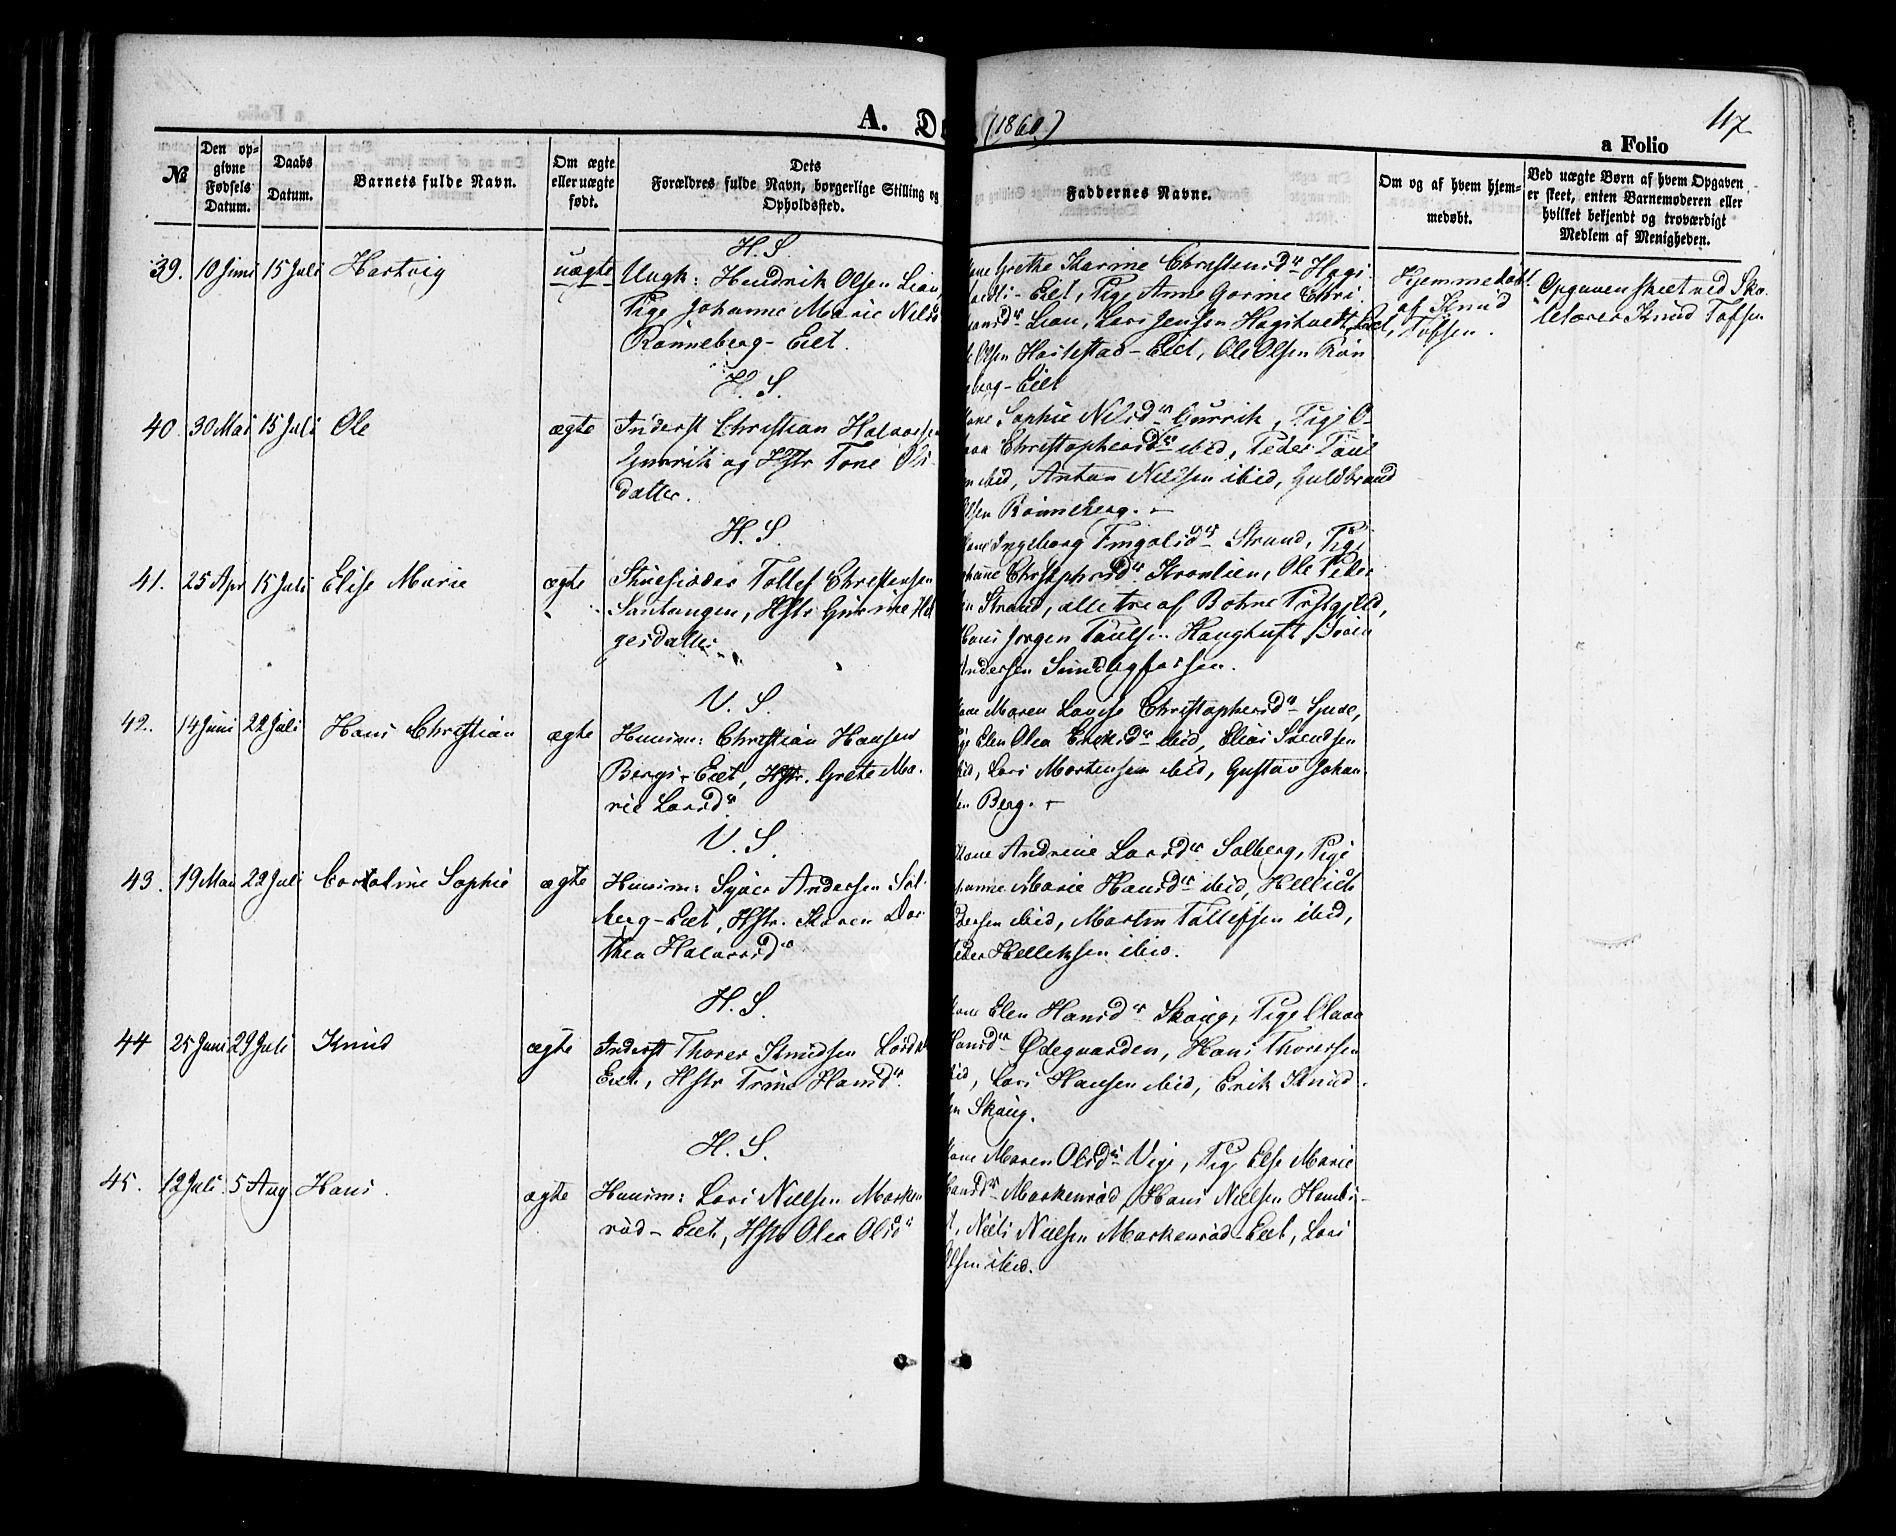 47
A. D (1860)
a Folio
№
Den opgivne Fødsels Datum.
Daabs Datum.
Barnets fulde Navn.
Om ægte eller uægte født.
Dets Forældres fulde Navn, borgerlige Stilling og Opholdssted.
Faddernes Navne.
Om og af hvem hjemmedøbt.
Ved uægte Børn af hvem Opgaven er skeet, enten Barnemoderen eller hvilket bekjendt og troværdigt Medlem af Menigheden.
H. S.
39. 10 Juni 15 Juli Hartvig uægte Ungk: Hendrik Olsen Lian,
Pige Johanne Marie Nils
Rønneberg-Eiet.
Grethe Karine Christensdr
Eiet, Pige Anne Gorine Chri-
Lian, Lars Jensen
Olsen Eiet, Ole Olsen Røn
berg-Eiet
Hjemmedøbt
af Knud
Tofsen.
Opgaven skeet ved Sko-
lelærer Knud Tofsen
H. S.
40. 30 Mai 15 Juli Ole ægte Inderst Christian Halvorsen
Gurrik og Hstr Tone Ols-
datter.
Sophie Nilsdr Gurrik, Pige O-
Christophersdr ibid, Peder Paul
ibid, Anton Nilsen ibid, Guldbrand
Rønneberg.
H. S.
41. 25 Apr 15 Juli Elise Marie ægte Tollef Christensen
Santangen, Hstr Gurine Hel
gesdatter
Ingeborg Strand, Pige
Christophersdr Ole Peder
Strand, alle tre af Botne Prstgjeld,
Hans Jørgen Paulsen
Andersen
V. S.
42. 14 Juni 22 Juli Hans Christian ægte Huusm: Christian Hansen
Bergs-Eiet, Hstr. Grete Ma-
rie Larsdr
Maren Lovise Christophersdr
Elen Olea ibid, Elias Svendsen
Lars Mortensen ibid, Gustav Johan-
Berg.
V. S.
43. 19 Mai 22 Juli Sophie ægte Huusm: Syver Andersen Sol-
berg-Eiet, Hstr. Karen Dor
thea Halvorsdr
Andrine Larsdr Solberg, Pige
Marie Hansdr ibid, Hellich
ibid, Martin Tollefsen ibid,
Helleksen ibid.
H. S.
44 25 Juni 29 Juli Knud ægte Inderst Thorer Knudsen
Eiet, Hstr Trine Hansdr.
Elen Hansdr Skoug, Pige Olava
Hansdr Ødegaarden, Hans Thorersen
Lars Hansen ibid, Erik Knud-
Skoug.
H. S.
45. 12 Juli 5 Aug Hans. ægte Huusm: Lars Nielsen Marken
rød-Eiet, Hstr Olea Olsdr
Maren Olsdr Pige Else Marie
Hansdr Markenrød, Hans Nielsen
Niels Nielsen Markenrød-Eiet, Lars
Olsen ibid.